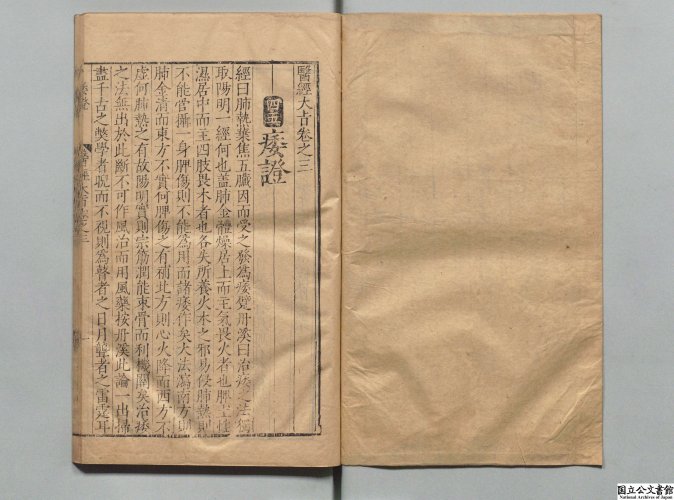 醫經大旨卷之三
四五 痿證
經曰肺熱葉焦五臟因而受之發為痿躄丹溪曰治痿之法獨
取陽明一經何也蓋肺金體燥居上而主氣畏火者也脾土性
濕居中而主四肢畏木者也各失所養火木之邪易侵肺熱則
不能管攝一身脾傷則不能為用而諸痿作矣大法瀉南方則
肺金清而東方不實何脾傷之有補北方則心火降而西方不
虛何肺熱之有故陽明實則宗筋潤能束骨而利機關矣治痿
之法無出於此斷不可作風治而用風藥按丹溪此論一出掃
盡千古之弊學者視而不視則為瞽者之日月聾者之雷霆耳
國立公文書館
National Archives of Japan